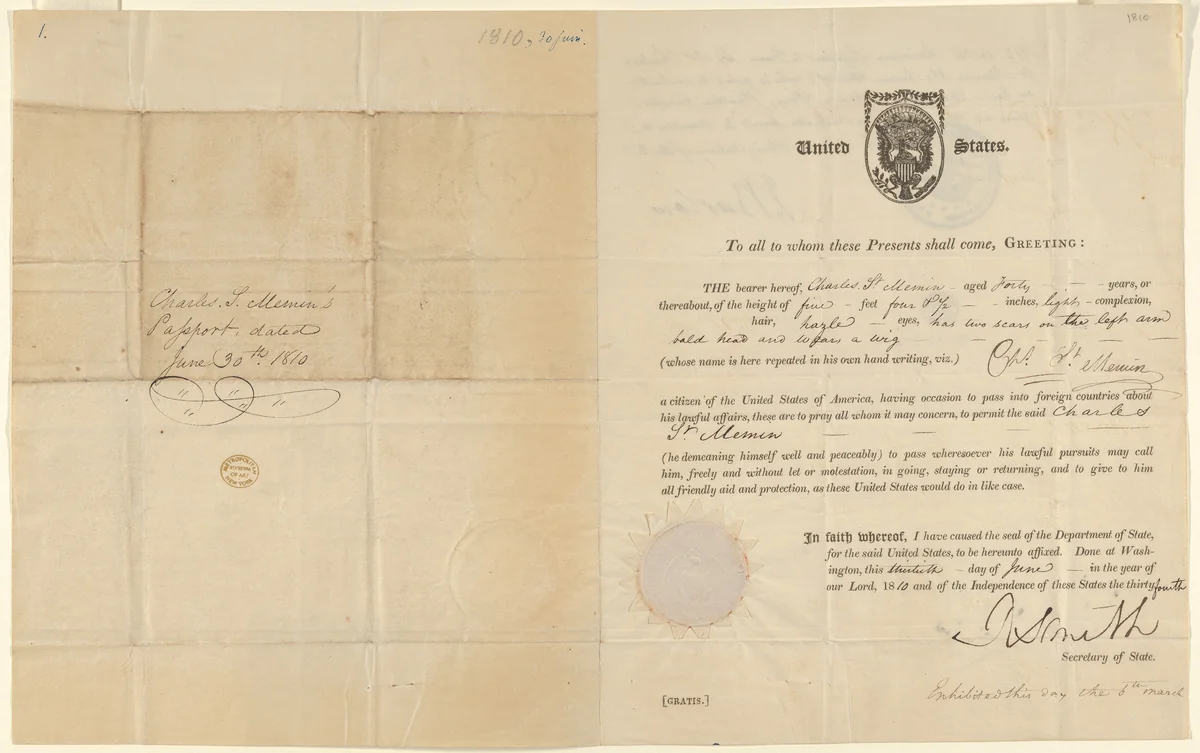 1.
1810, 30 juin.
Charles. S. Memin's
Passport, dated
June 30th. 1810
METROPOLITAN
MUSEUM
OF ART
NEW YORK
1810
United States.
To all to whom these Presents shall come, GREETING:
THE bearer hereof, Charles St Memin – aged Forty – – years, or
thereabout, of the height of five – feet four & 1/2 – – inches, light – complexion,
hair, hazle – eyes, has two scars on the left arm
bald head and wears a wig – – – – –
(whose name is here repeated in his own hand writing, viz.) Chs. St. Memin
a citizen of the United States of America, having occasion to pass into foreign countries about
his lawful affairs, these are to pray all whom it may concern, to permit the said Charles
St. Memin — — —
(he demeaning himself well and peaceably) to pass wheresoever his lawful pursuits may call
him, freely and without let or molestation, in going, staying or returning, and to give to him
all friendly aid and protection, as these United States would do in like case.
In faith whereof, I have caused the seal of the Department of State,
for the said United States, to be hereunto affixed. Done at Wash-
ington, this thirtieth – day of June – in the year of
our Lord, 1810 and of the Independence of these States the thirty fourth
R Smith
Secretary of State.
Exhibited this day the 6th march
[GRATIS.]